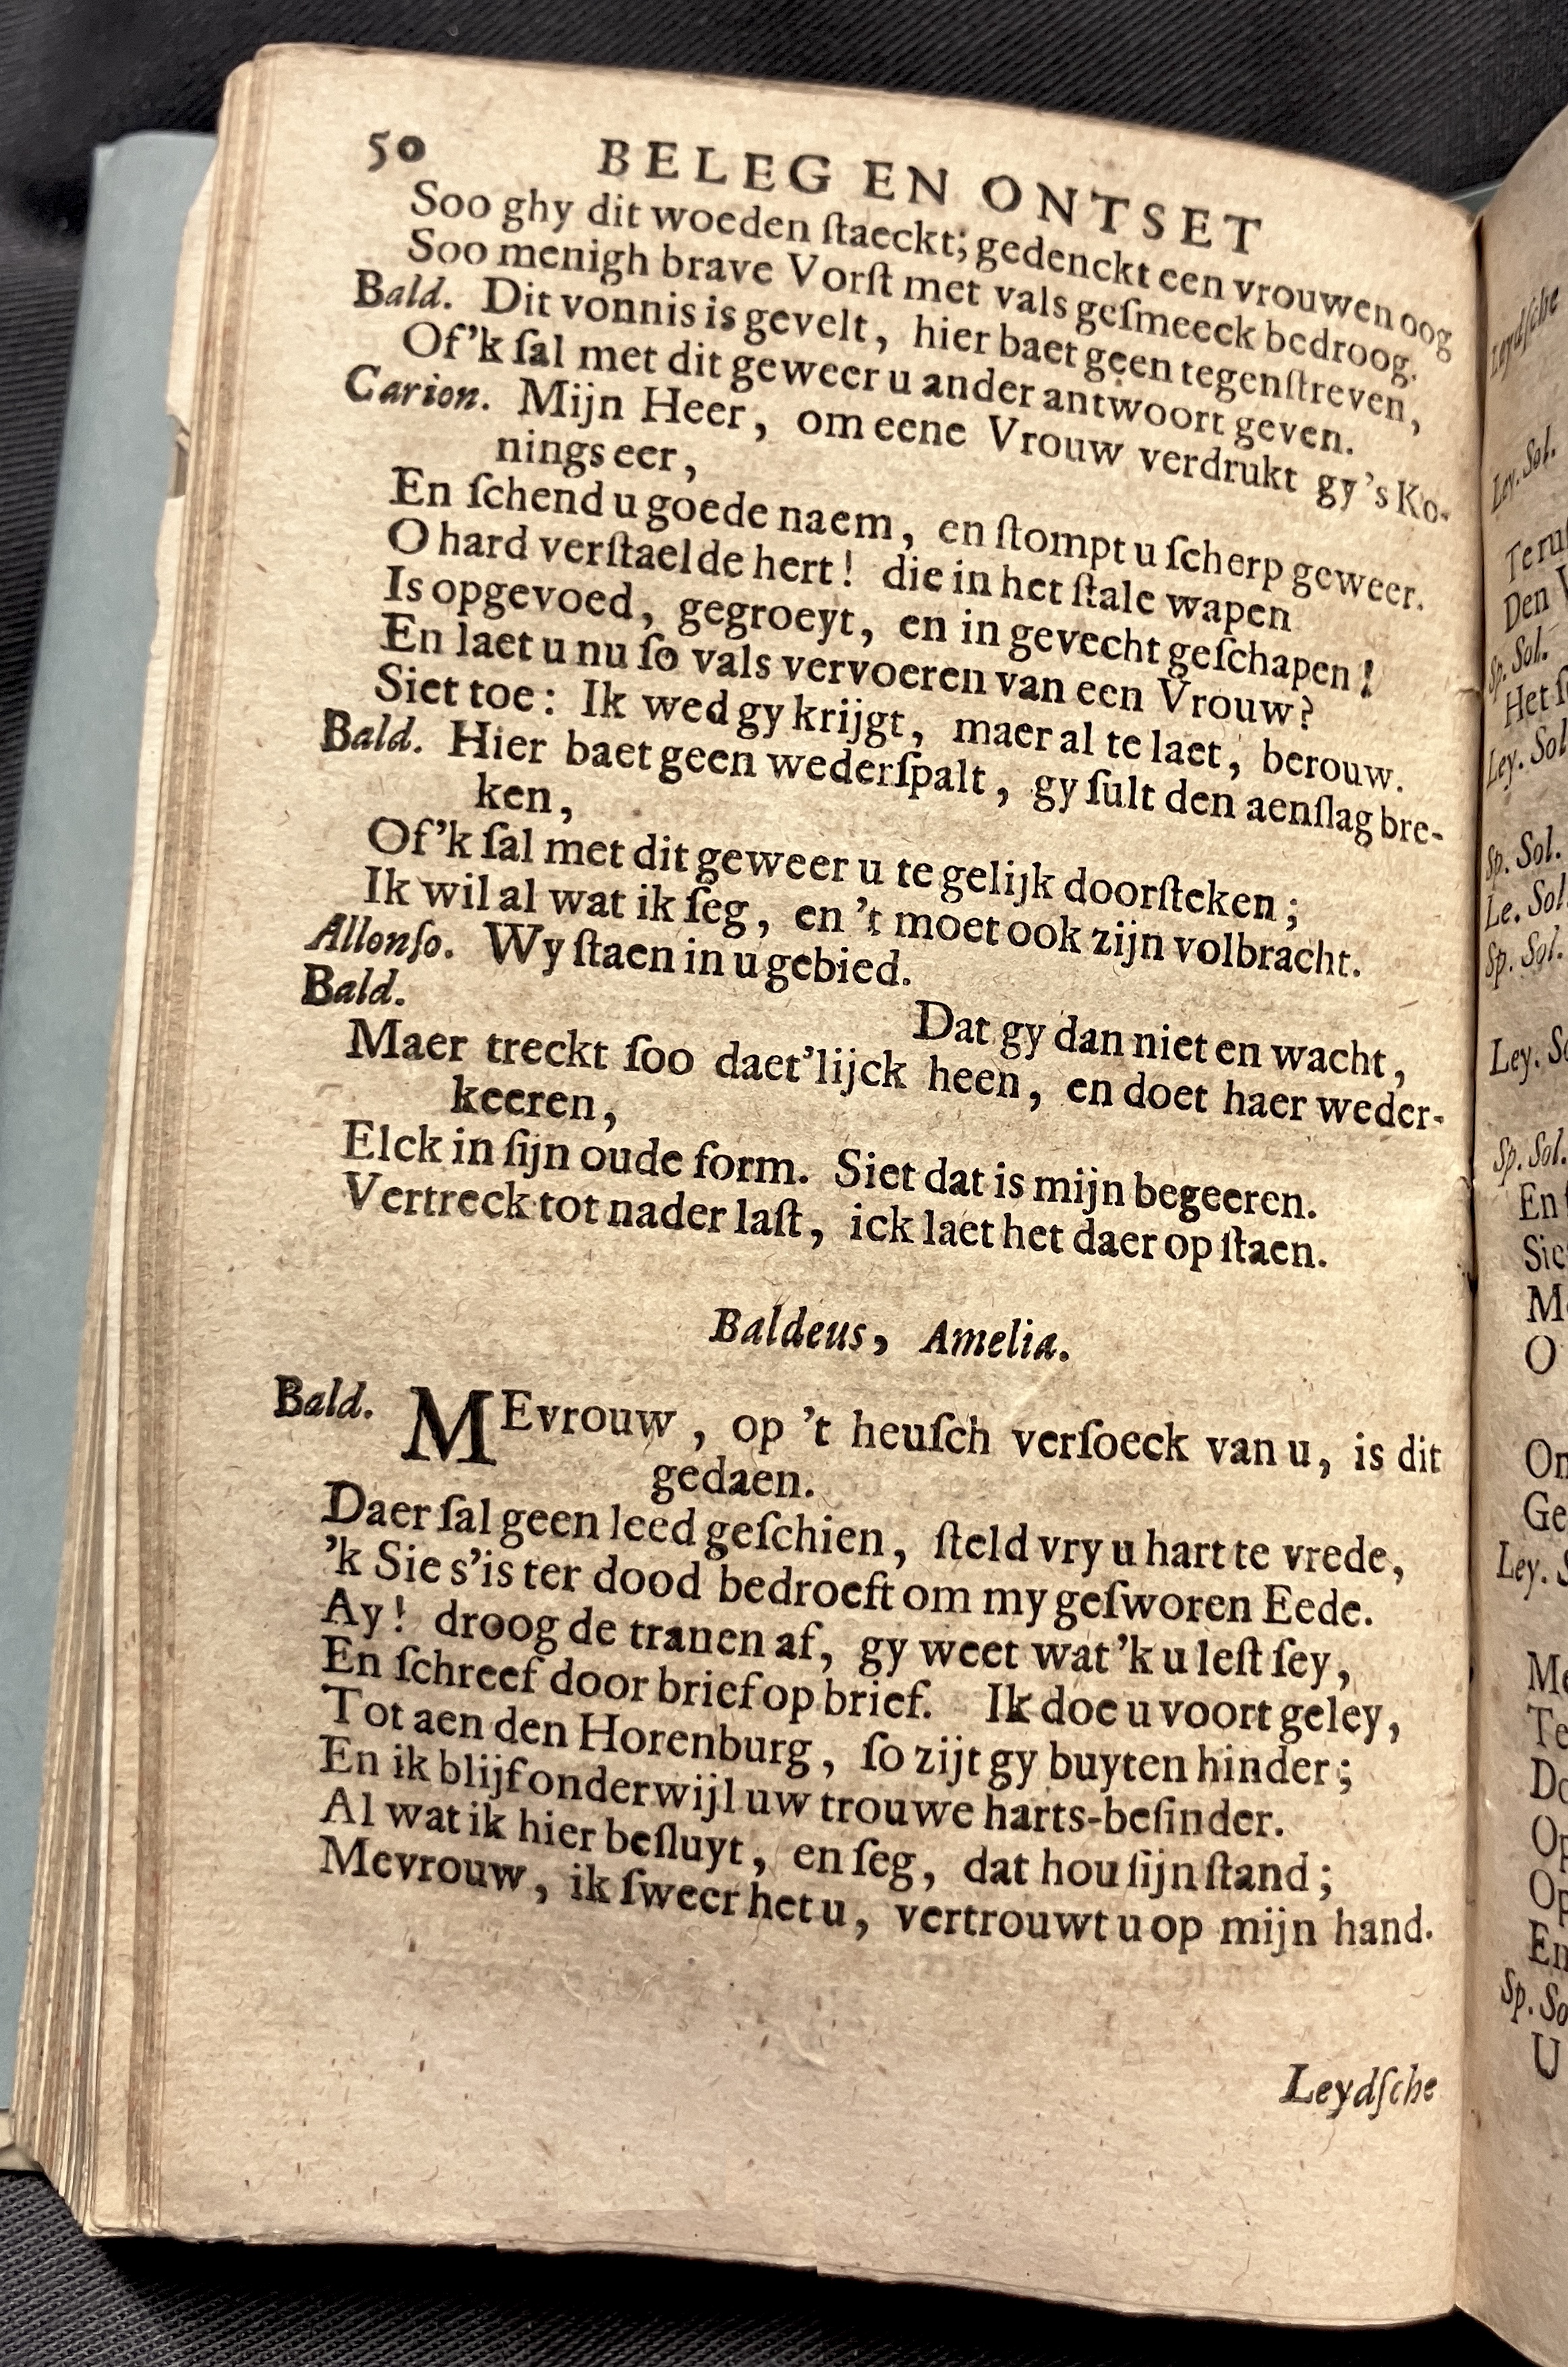 50 BELEG EN ONTSET
Soo ghy dit woeden ſtaeckt; gedenckt een vrouwen oog
Soo menigh brave Vorſt met vals geſmeeck bedroog.
Bald. Dit vonnis is gevelt, hier baet geen tegenſtreven,
Of'k ſal met dit geweer u ander antwoort geven.
Carion. Mijn Heer, om eene Vrouw verdrukt gy 's Ko-
nings eer,
En ſchend u goede naem, en ſtompt u ſcherp geweer.
O hard verſtaelde hert! die in het ſtale wapen
Is opgevoed, gegroeyt, en in gevecht geſchapen!
En laet u nu ſo vals vervoeren van een Vrouw?
Siet toe: Ik wed gy krijgt, maer al te laet, berouw.
Bald. Hier baet geen wederſpalt, gy ſult den aenſlag bre-
ken,
Of'k ſal met dit geweer u te gelijk doorſteken;
Ik wil al wat ik ſeg, en 't moet ook zijn volbracht.
Allonſo. Wy ſtaen in u gebied.
Bald. Dat gy dan niet en wacht,
Maer treckt ſoo daet'lijck heen, en doet haer weder-
keeren,
Elck in ſijn oude form. Siet dat is mijn begeeren.
Vertreck tot nader laſt, ick laet het daer op ſtaen.
Baldeus, Amelia.
Bald. MEvrouw, op 't heuſch verſoeck van u, is dit
gedaen.
Daer ſal geen leed geſchien, ſteld vry u hart te vrede,
'k Sie s'is ter dood bedroeft om my geſworen Eede.
Ay! droog de tranen af, gy weet wat 'k u leſt ſey,
En ſchreef door brief op brief. Ik doe u voort geley,
Tot aen den Horenburg, ſo zijt gy buyten hinder;
En ik blijf onderwijl uw trouwe harts-beſinder.
Al wat ik hier beſluyt, en ſeg, dat hou ſijn ſtand;
Mevrouw, ik ſweer het u, vertrouwt u op mijn hand.
Leydſche
Leydſche
Ley. Sol.
Den
Sp. Sol.
Ley. Sol
Sp. Sol.
Le. Sol.
Sp. Sol.
Ley.
Sp. Sol.
O
Ley.
Sp.
U